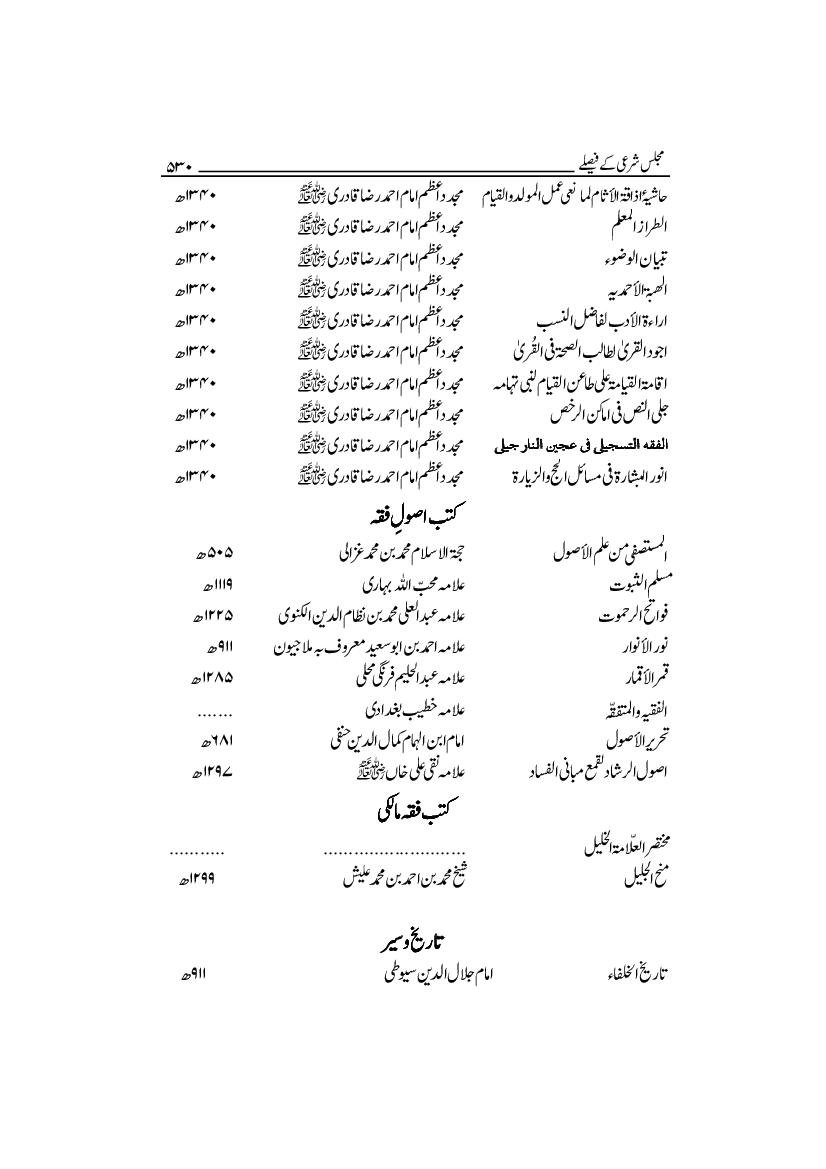 مجلس شرعی کے فیصلے ۵۳۰
حاشیۂ اذاقۃ الأثام لمانعی عمل المولد والقیام مجدد اعظم امام احمد رضا قادری ﷛ ۱۳۴۰ھ
الطراز المعلم مجدد اعظم امام احمد رضا قادری ﷛ ۱۳۴۰ھ
تبیان الوضوء مجدد اعظم امام احمد رضا قادری ﷛ ۱۳۴۰ھ
الھبۃ الأحمدیہ مجدد اعظم امام احمد رضا قادری ﷛ ۱۳۴۰ھ
اراءۃ الأدب لفاضل النسب مجدد اعظم امام احمد رضا قادری ﷛ ۱۳۴۰ھ
اجود القریٰ لطالب الصحۃ فی القُریٰ مجدد اعظم امام احمد رضا قادری ﷛ ۱۳۴۰ھ
اقامۃ القیامۃ علی طاعن القیام لنبی تہامہ مجدد اعظم امام احمد رضا قادری ﷛ ۱۳۴۰ھ
جلی النص فی اماکن الرخص مجدد اعظم امام احمد رضا قادری ﷛ ۱۳۴۰ھ
الفقه التسجیلی فی عجین النار جیلی مجدد اعظم امام احمد رضا قادری ﷛ ۱۳۴۰ھ
انور البشارۃ فی مسائل الحج والزیارۃ مجدد اعظم امام احمد رضا قادری ﷛ ۱۳۴۰ھ
کتب اصولِ فقہ
المستصفیٰ من علم الأصول حجۃ الاسلام محمد بن محمد غزالی ۵۰۵ھ
مسلم الثبوت علامہ محبّ اللہ بہاری ۱۱۱۹ھ
فواتح الرحموت علامہ عبد العلی محمد بن نظام الدین الکنوی ۱۲۲۵ھ
نور الأنوار علامہ احمد بن ابو سعید معروف بہ ملا جیون ۹۱۱ھ
قمر الأقمار علامہ عبد الحلیم فرنگی محلی ۱۲۸۵ھ
الفقیہ والمتفقّہ علامہ خطیب بغدادی .......
تحریر الأصول امام ابن الہام کمال الدین حنفی ۶۸۱ھ
اصول الرشاد لقمع مبانی الفساد علامہ نقی علی خاں ﷛ ۱۲۹۷ھ
کتب فقہ مالکی
مختصر العلّامۃ الخلیل ........................... ...........
منح الجلیل شیخ محمد بن احمد بن محمد علیش ۱۲۹۹ھ
تاریخ و سیر
تاریخ الخلفاء امام جلال الدین سیوطی ۹۱۱ھ